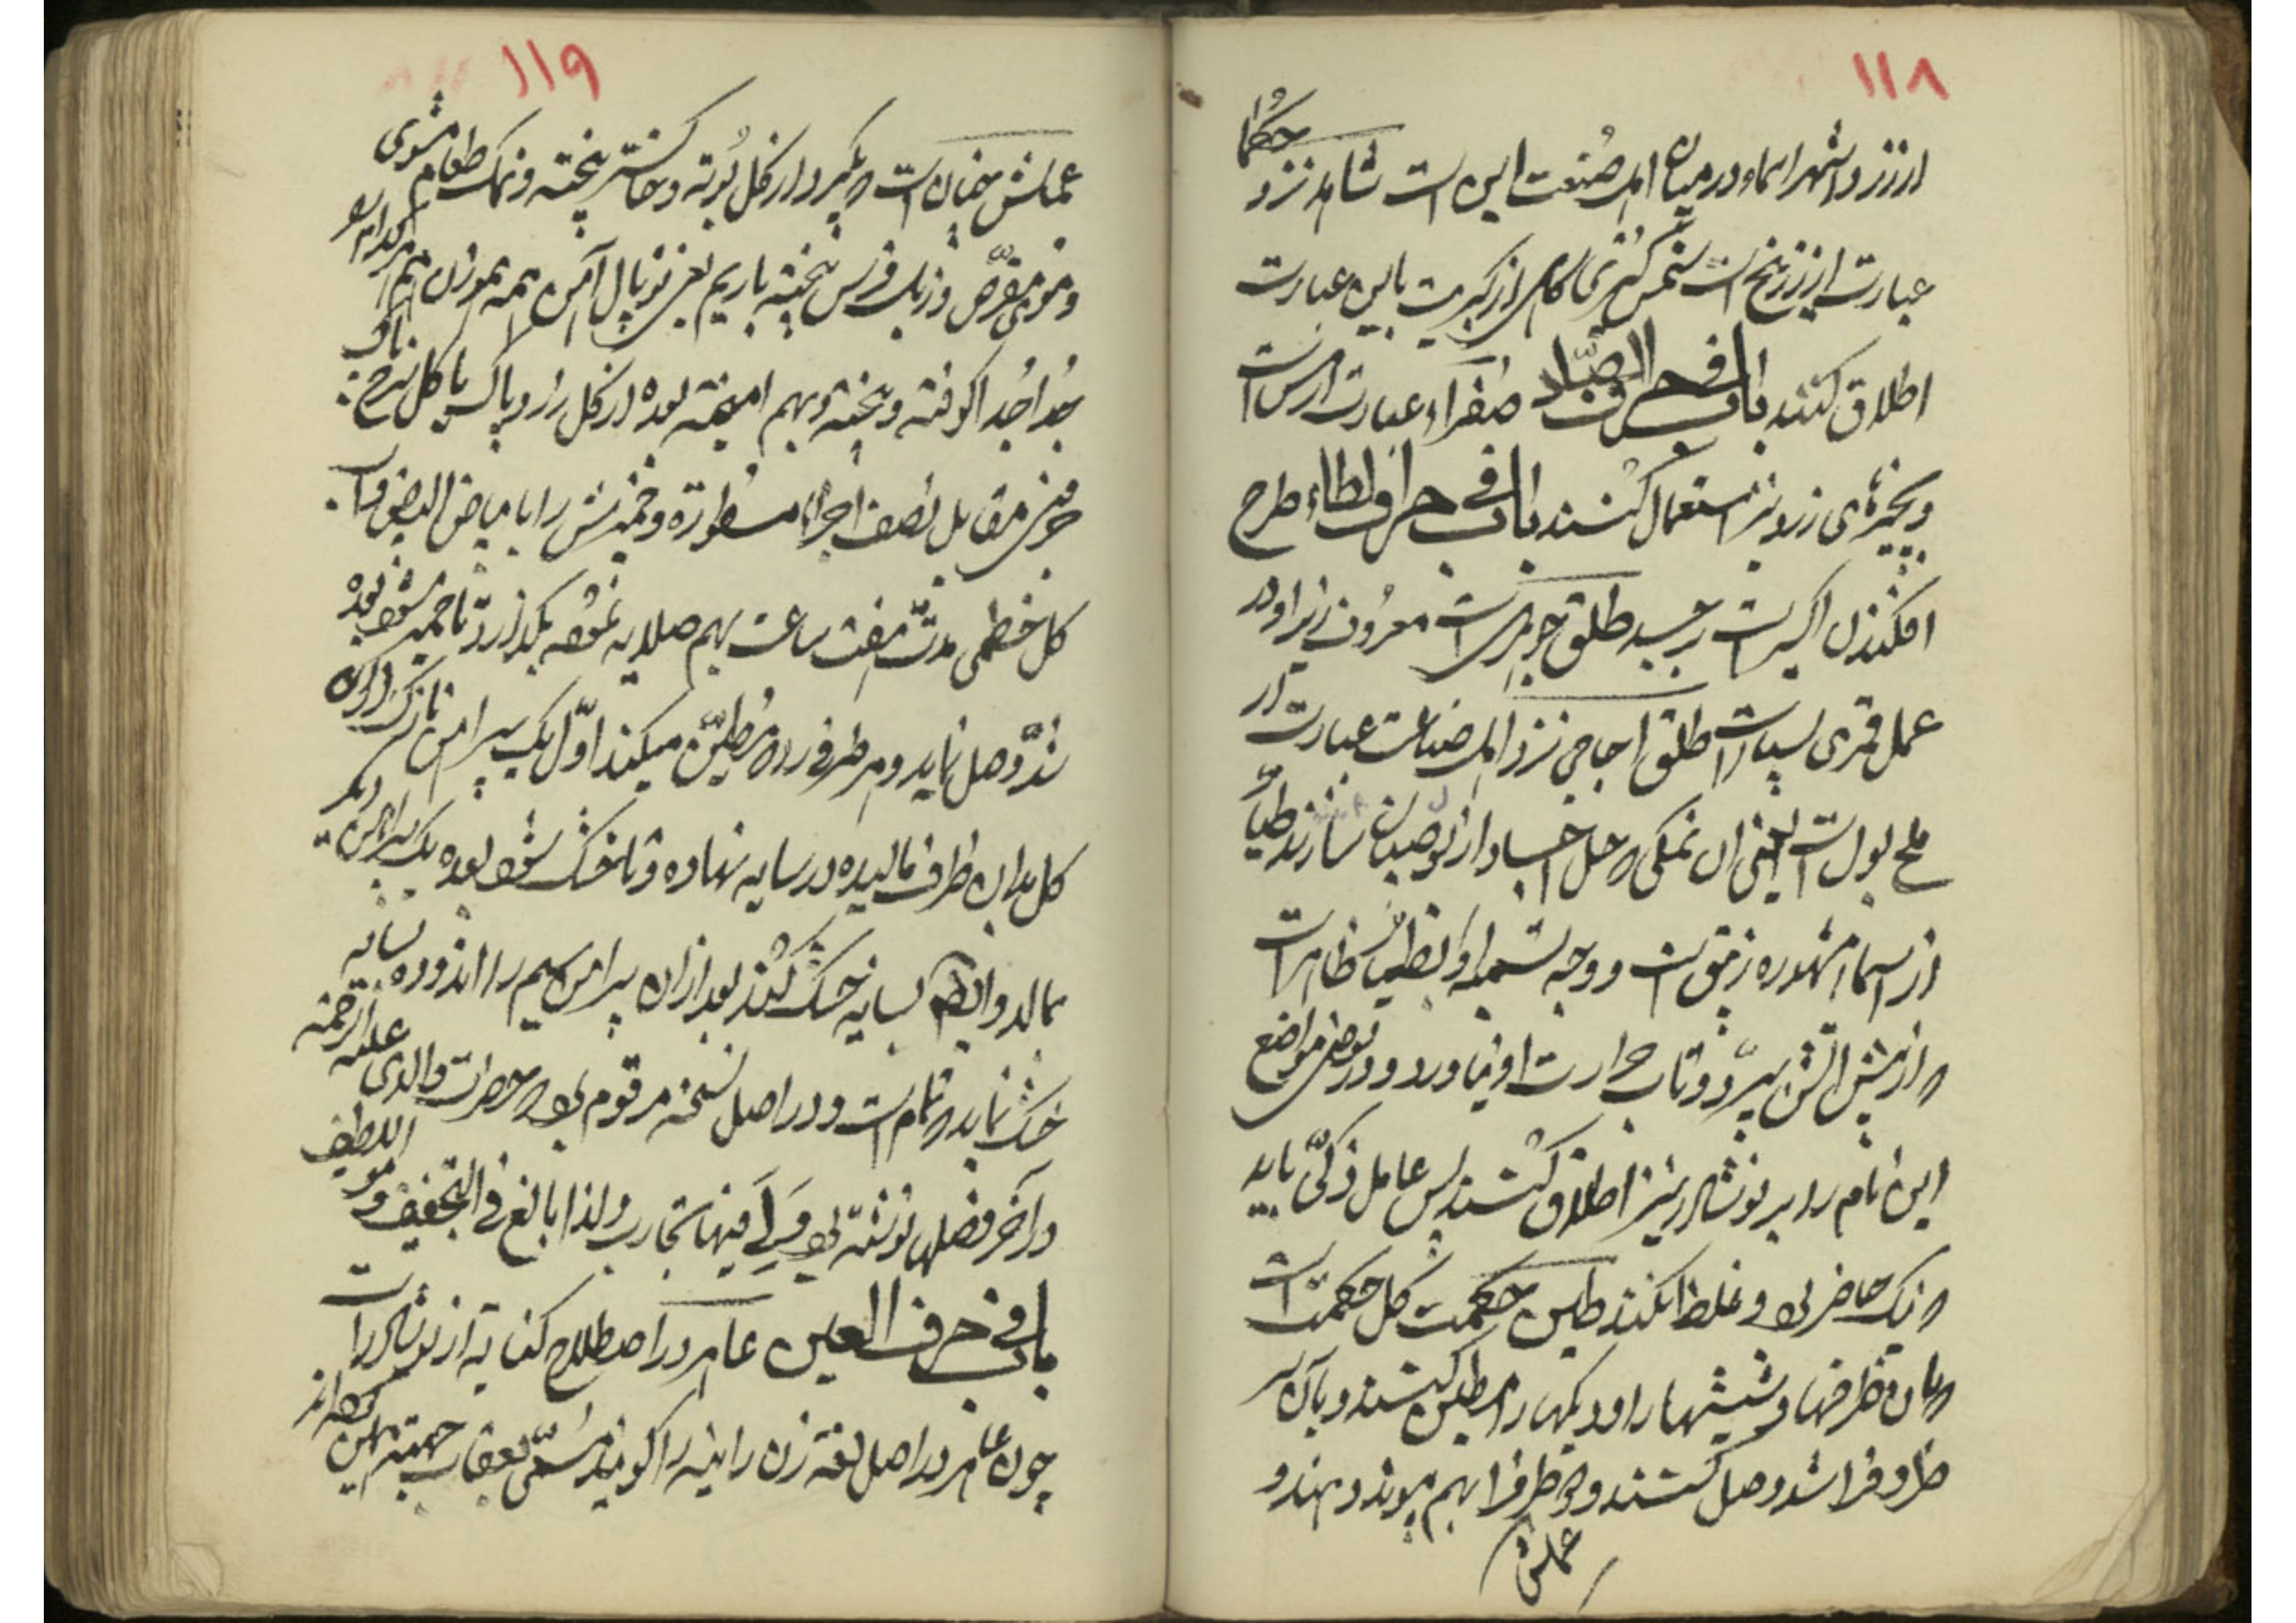 ١١٨
ارزز و اشهر اسماء در میان اهل صنعت این است شاهد نزد حکما
عبارت از زرنیخ است شمس کبری گاهی از کبریت باین عبارت
اطلاق کنند باب فی حرف الصاد صفراء عبارت از مس است
و بچیزهای زرد نیز استعمال کنند باب فی حرف الطاء طرح
افکندن اکسیر است بر جسد طلق جوهریست معروف زیرا در
عمل قمری بسیار است طلق اجاجی نزد اهل صناعت عبارت از
ملح بول است یعنی ان نمکی که حل اجساد از بول صبیان سازند طیار
از اسماء مشهوره زیبق است و وجه تسمیه او بطیار ظاهر است
که از پیش اتش بپرد و تاب حرارت او نیاورد و در بعضی مواضع
این نام را بر نوشادر نیز اطلاق کنند پس عامل ذکی باید
که نیک حاضر بود و غلط نکند طین حکمت گل حکمت است
که بان ظرفها و شیشها را و دیکها را مطین کنند و بان سر
ظروف را سد وصل کنند و دو ظرف را بهم پیوند دهند و
عملش
١١٩
عملش چنان است که بگیرد از گل بوته و خاکستر پیخته و نمک طعام مشوی
و موی مقرض و زبل فرس پیخته باریم یعنی توپال آهن همه هموزن هم
جدا جدا کوفته و پیخته و بهم امیخته بعده از گل زرد پاک یا گل سرخ
جوفی مقابل نصف اجزاء مسطوره و خمیرش را با بیاض البیض و آب
گل خطمی مدت هفت ساعت بهم صلایه نموده بگذارد تا خمیر شود بعده
سد وصل نماید و هر ظرفی را که مطین میکند اول یک پیراهن نازک
گل بدان ظرف مالیده در سایه نهاده تا خشک شود بعده یک پیراهن دیگر
بمالد و ایضا بسایه خشک کند بعد از آن پیراهن سیم را اندوده بسایه
خشک نماید که تمام است و در اصل نسخه مرقوم بود که حضرت والدی علیه الرحمه
در آخر فصلها نوشته بود ولی فیها تجارب ولذا بالغ فی التخفیف و هو اللطیف
باب فی حرف العین عاهر در اصطلاح کنایه از نوشادر است
چون عاهر در اصل لغة زن زانیه را گویند مسمی بعقاب جهة همین کرده اند